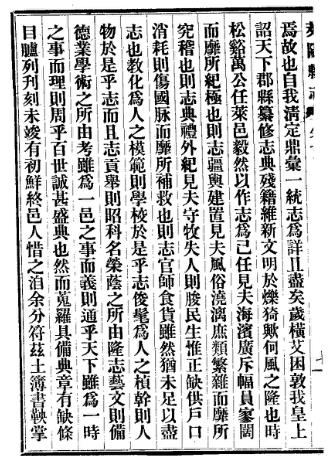 焉故也自我清定鼎彙一統志爲詳且盡矣歲橫艾困敦我皇上
詔天下郡縣纂修志典殘籍維新文明於爍猗歟何風之隆也時
松谿萬公任萊邑毅然以作志爲己任見夫海濱廣斥幅員寥闊
而靡所紀極也則志疆輿建置見夫風俗澆漓庶類繁雜而靡所
究稽也則志典禮外紀見夫守牧失人則脧民生惟正缺供戶口
消耗則傷國脈而靡所補救也則志官師食貨雖然猶未足以盡
志也教化爲人之模範則學校於是乎志俊髦爲人之楨幹則人
物於是乎志而且志貢舉則昭科名榮蔭之所由隆志藝文則備
德業學術之所由考雖爲一邑之事而義則通乎天下雖爲一時
之事而理則周乎百世誠甚盛典也然而蒐羅具備典章有缺條
目臚列刊刻未竣有初鮮終邑人惜之洎余分符茲土簿書鞅掌